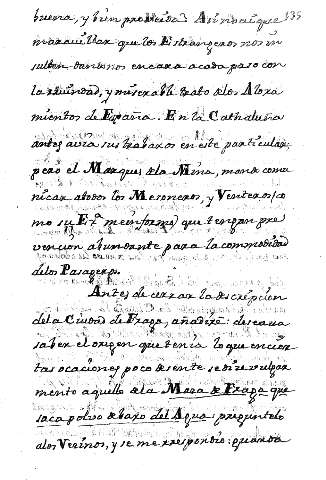 buena, y bien proveida. Asi no ai que
maravillar que los Estrangeros nos in
sulten dandonos en cara a cada paso con
la ruindad, y miserable trato de los Aloxa
mientos de España. En la Cathaluña
antes avia sus trabaxos en este particular;
pero el Marques de la Mina, mando comu
nicar a todos los Mesoneros, y Venteros (co
mo su Exª me informó) que tengan pre
vencion abundante para la commodidad
de los Pasageros.
Antes de cerrar la descripcion
de la Ciudad de Fraga, añadiré: deseava
saber el origen que tenia lo que en cier
tas ocaciones poco decente se dize vulgar
mente aquello de la Moza de Fraga que
saca polvo debaxo del Agua: preguntelo
a los Vezinos, y se me respondio: quando